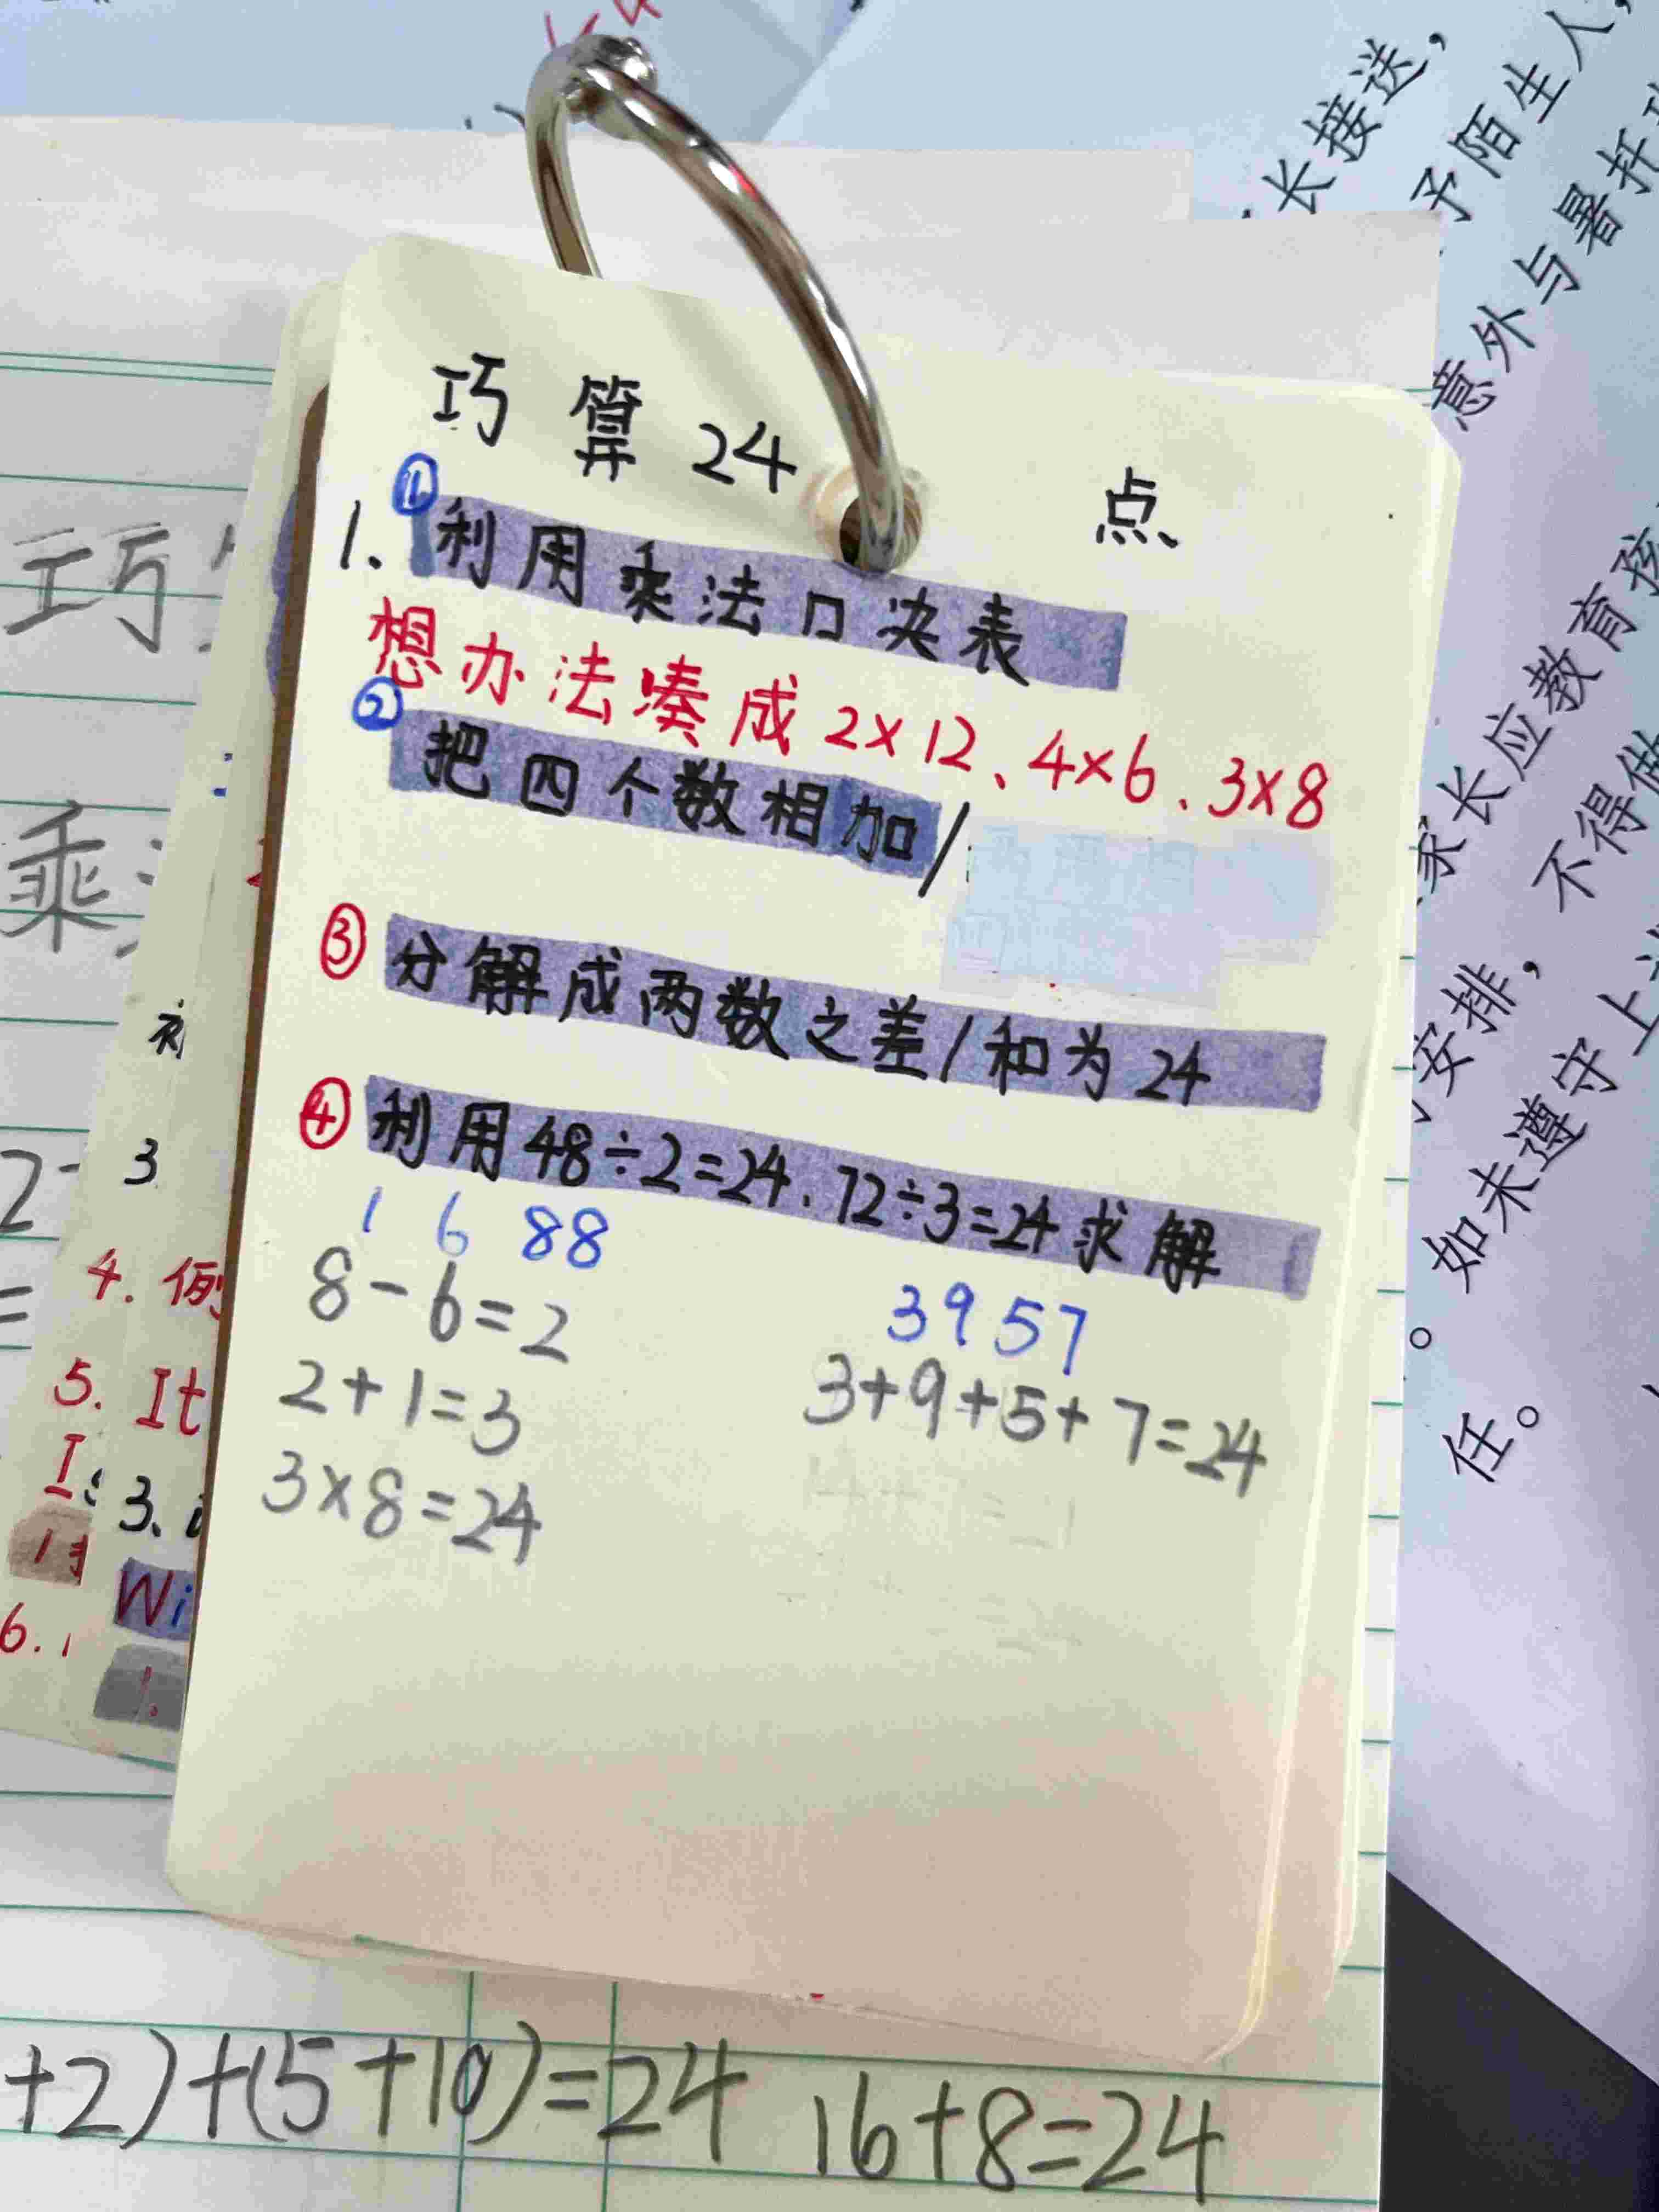 巧算24点
1、①利用乘法口决表
想办法凑成2×12、4×6、3×8
②把四个数相加/
③分解成两数之差/和为24
④利用48÷2=24、72÷3=24求解
1 6 88
8-6=2
2+1=3
3×8=24
3957
3+9+5+7=24
+2)+(5+10)=24 16+8=24
巧
乘
2
=
3
4.例
5. It
I
3、
Wi
1.
6.
长接送，
予陌生人，
意外与暑托
家长应教育孩
不得做
安排，
如未遵守上
。
任。